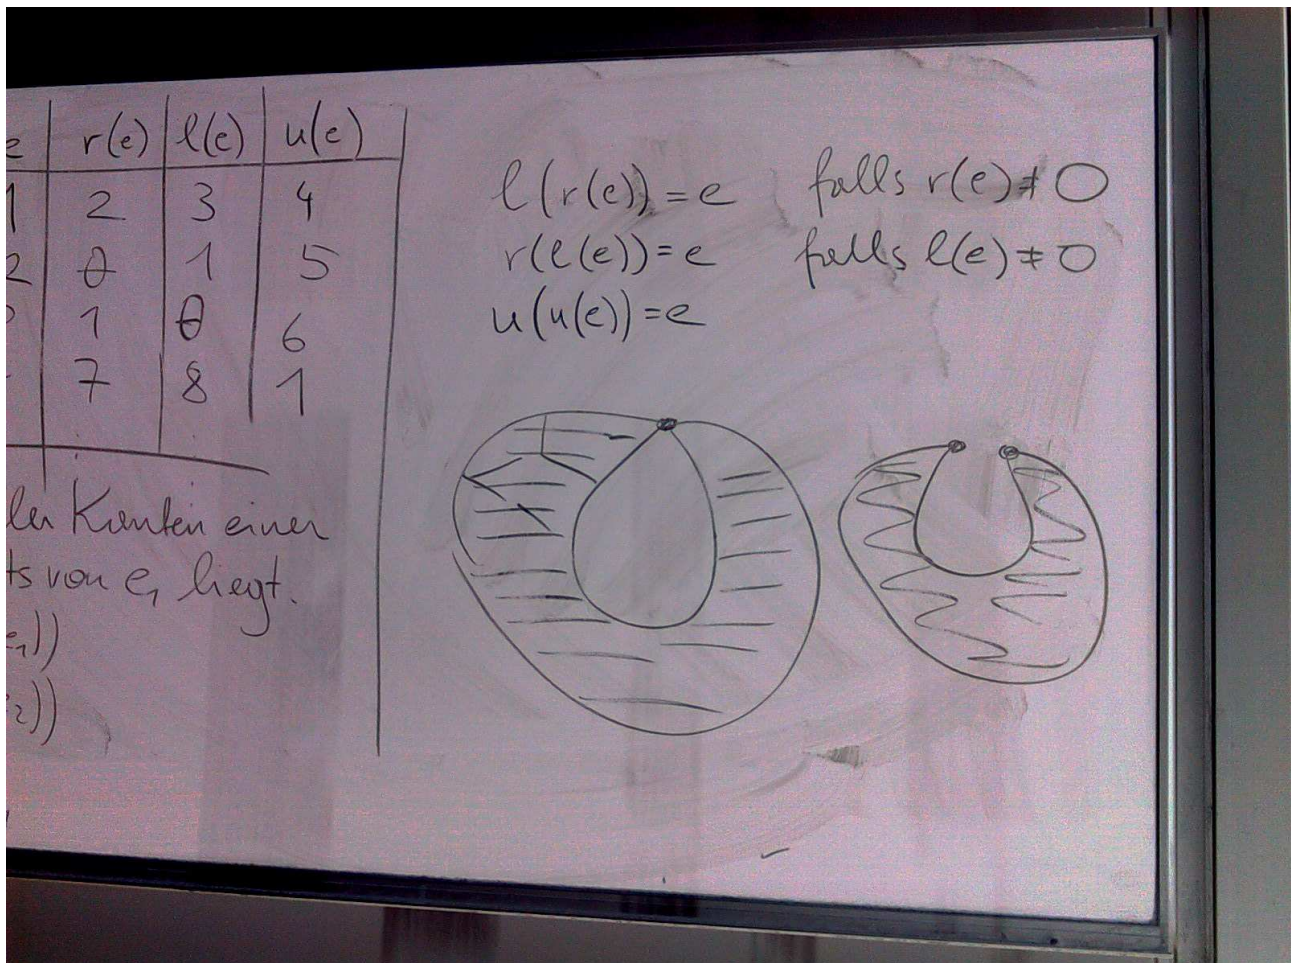 r(e) l(e) u(e)
1 2 3 4
2 0 1 5
1 0 6
7 8 1
Kanten einer
von e₁ liegt.
))
₂))
l(r(e))=e falls r(e)≠0
r(l(e))=e falls l(e)≠0
u(u(e))=e